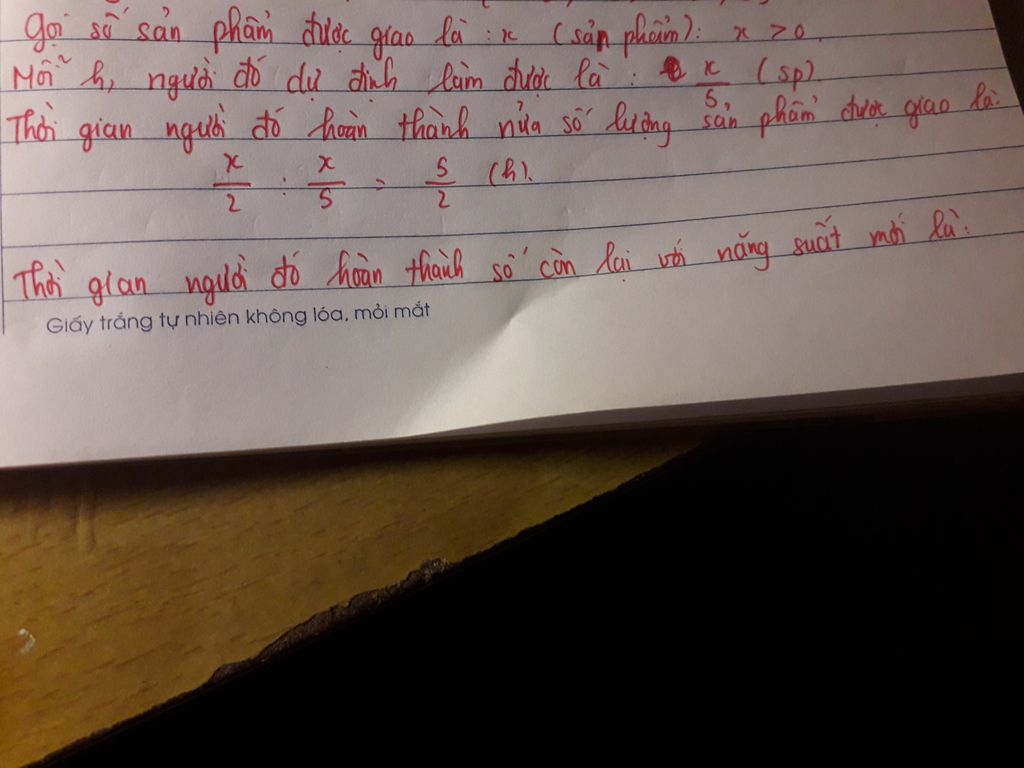 Gọi số sản phẩm được giao là : x (sản phẩm). x > 0.
Mỗi h, người đó dự định làm được là : x/5 (sp).
Thời gian người đó hoàn thành nửa số lượng sản phẩm được giao là:
x/2 : x/5 = 5/2 (h).
Thời gian người đó hoàn thành số còn lại với năng suất mới là:
Giấy trắng tự nhiên không lóa, mỏi mắt